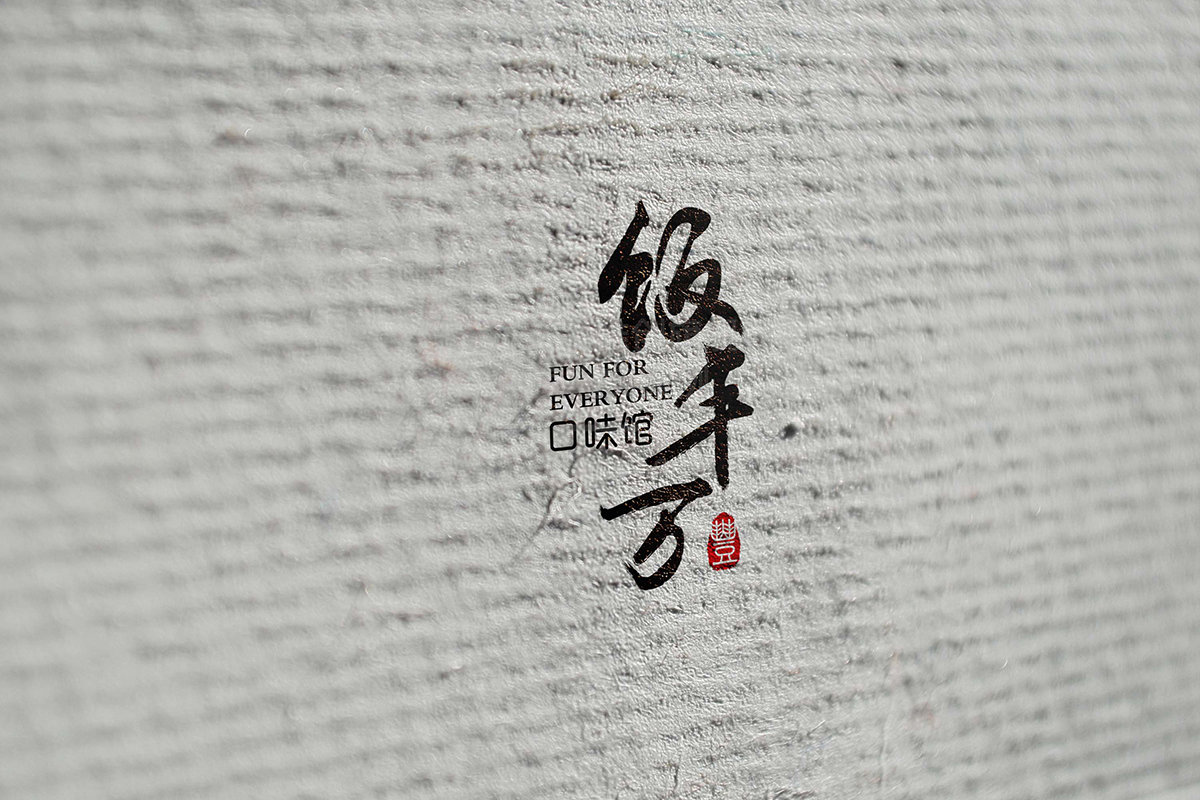 饭
丰
万
FUN FOR
EVERYONE
口味馆
豐